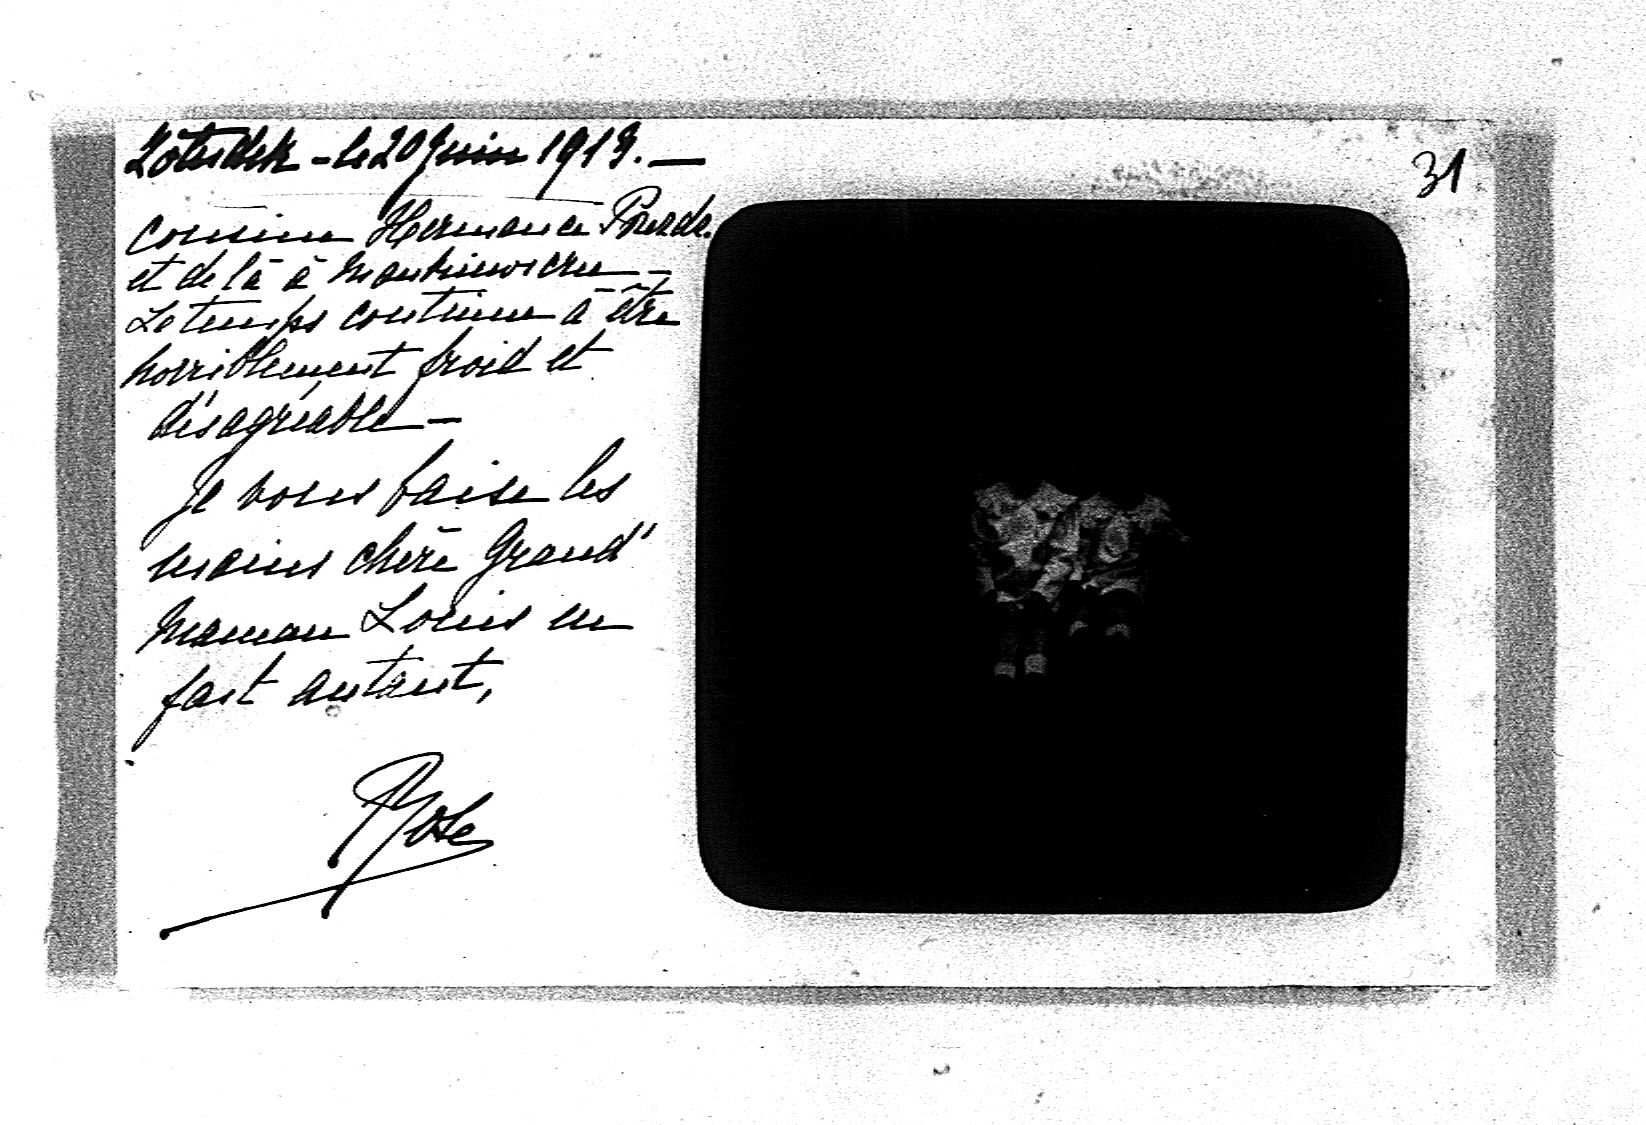 le 20 Juin 1913. —
31
cousine Hermance
et de là à
Le temps continue à être
horriblement froid et
désagréable —
Je vous baise les
mains chère Grand'
Maman Louis en
fait autant,
Rose